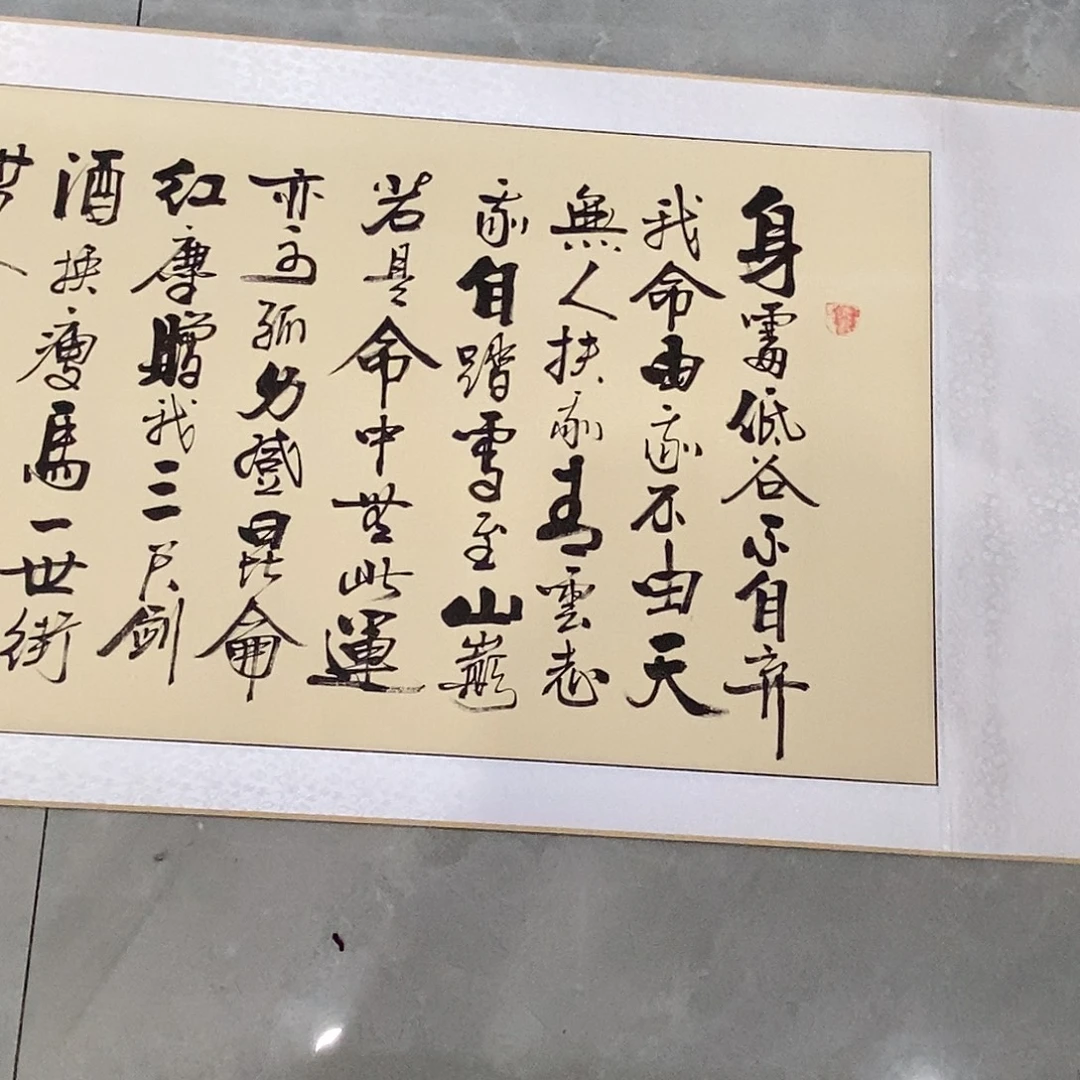 身處低谷不自弃
我命由我不由天
無人扶我青雲志
我自踏雪至山巔
若是命中無此運
亦可孤身登昆侖
紅塵贈我三尺劍
酒換瘦馬一世街
世人